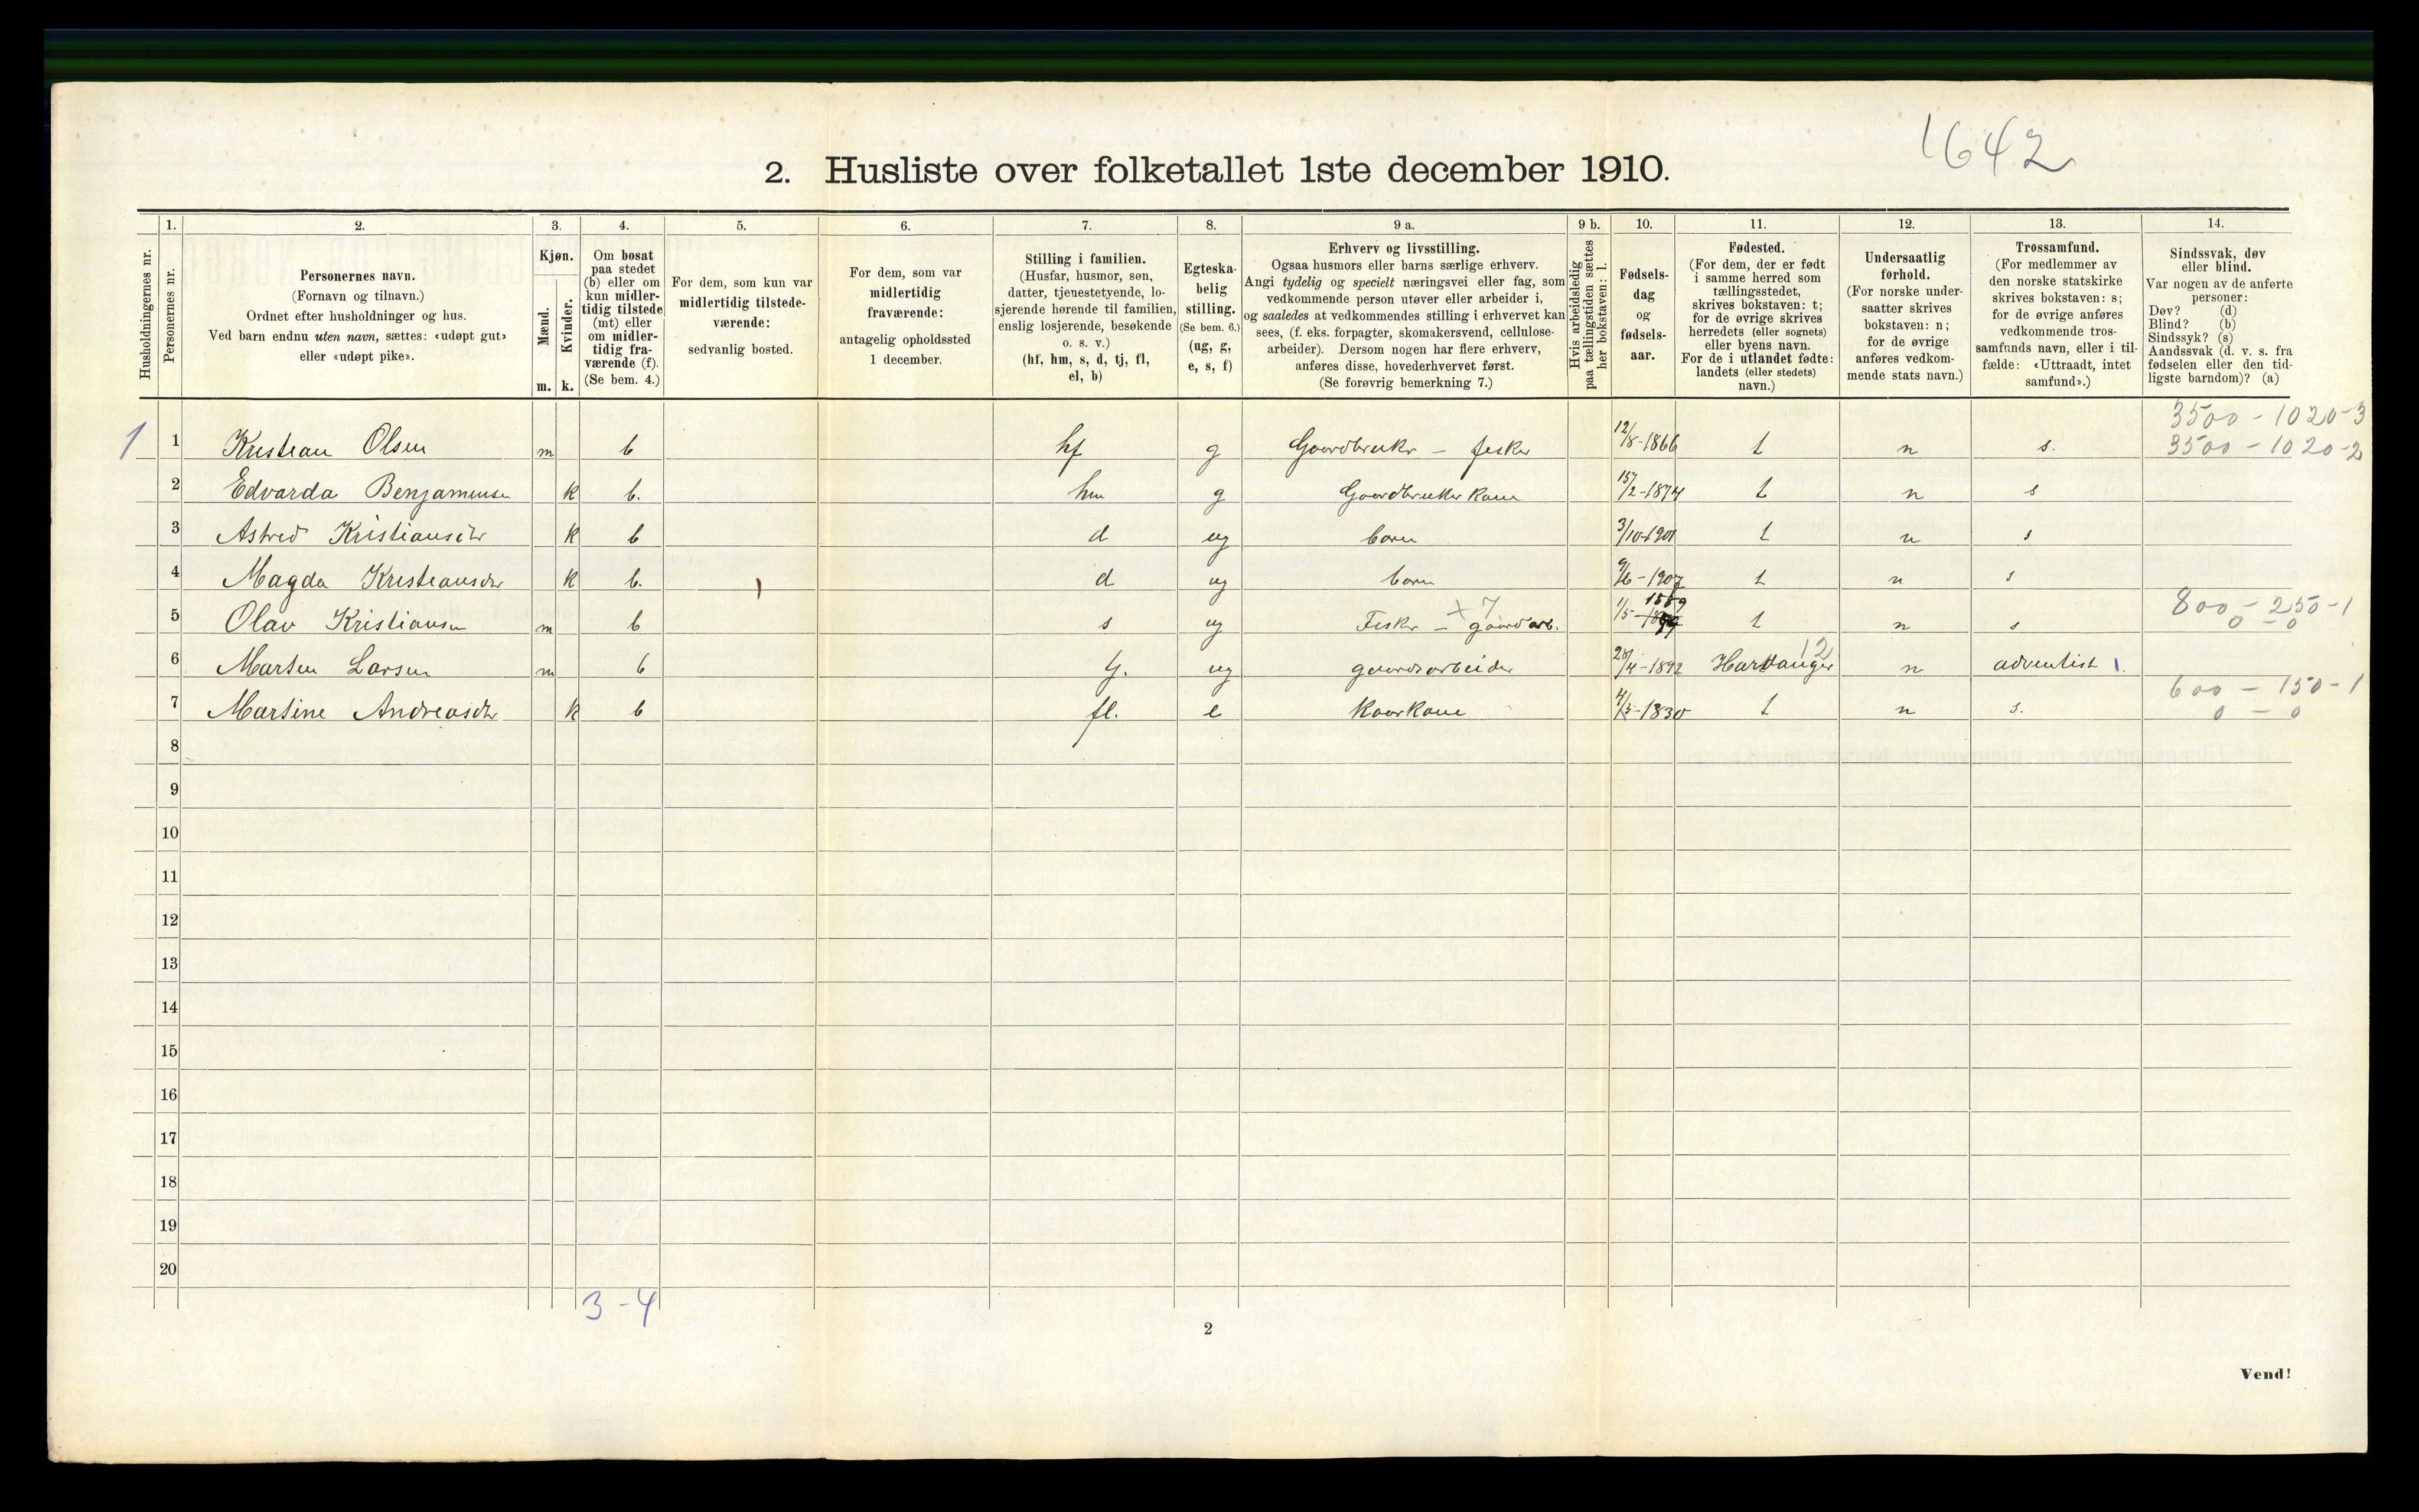 1642
2. Husliste over folketallet 1ste december 1910.
1. 2. 3. 4. 5. 6. 7. 8. 9 a. 9 b. 10. 11. 12. 13. 14.
Husholdningernes nr.
Personernes nr.
Personernes navn.
(Fornavn og tilnavn.)
Ordnet efter husholdninger og hus.
Ved barn endnu uten navn, sættes: «udøpt gut»
eller «udøpt pike».
Kjøn.
Mænd.
Kvinder.
m. k.
Om bosat
paa stedet
(b) eller om
kun midler-
tidig tilstede
(mt) eller
om midler-
tidig fra-
værende (f).
(Se bem. 4.)
For dem, som kun var
midlertidig tilstede-
værende:
sedvanlig bosted.
For dem, som var
midlertidig
fraværende:
antagelig opholdssted
1 december.
Stilling i familien.
(Husfar, husmor, søn,
datter, tjenestetyende, lo-
sjerende hørende til familien,
enslig losjerende, besøkende
o. s. v.)
(hf, hm, s, d, tj, fl,
el, b)
Egteska-
belig
stilling.
(Se bem. 6.)
(ug, g,
e, s, f)
Erhverv og livsstilling.
Ogsaa husmors eller barns særlige erhverv.
Angi tydelig og specielt næringsvei eller fag, som
vedkommende person utøver eller arbeider i,
og saaledes at vedkommendes stilling i erhvervet kan
sees, (f. eks. forpagter, skomakersvend, cellulose-
arbeider). Dersom nogen har flere erhverv,
anføres disse, hovederhvervet først.
(Se forøvrig bemerkning 7.)
Hvis arbeidsledig
paa tællingstiden sættes
her bokstaven: l.
Fødsels-
dag
og
fødsels-
aar.
Fødested.
(For dem, der er født
i samme herred som
tællingsstedet,
skrives bokstaven: t;
for de øvrige skrives
herredets (eller sognets)
eller byens navn.
For de i utlandet fødte:
landets (eller stedets)
navn.)
Undersaatlig
forhold.
(For norske under-
saatter skrives
bokstaven: n;
for de øvrige
anføres vedkom-
mende stats navn.)
Trossamfund.
(For medlemmer av
den norske statskirke
skrives bokstaven: s;
for de øvrige anføres
vedkommende tros-
samfunds navn, eller i til-
fælde: «Uttraadt, intet
samfund».)
Sindssvak, døv
eller blind.
Var nogen av de anførte
personer:
Døv? (d)
Blind? (b)
Sindssyk? (s)
Aandssvak (d. v. s. fra
fødselen eller den tid-
ligste barndom)? (a)
3500 - 1020-3
1 1 Kristian Olsen m b hf g Gaardbruker - fisker 12/8-1866 t n s. 3500 - 1020-2
2 Edvarda Benjaminsen k b. hm g Gaardbruker kone 15/2-1874 t n s
3 Astrid Kristiansdtr k b d ug barn 3/10-1901 t n s
4 Magda Kristiansdtr k b. d ug barn 9/6-1907 t n s
5 Olav Kristiansen m b s ug Fisker - gaardarb. x7 1/5 1889 t n s 800 - 250-1
0 - 0
6 Martin Larsen m b tj. ug gaardsarbeider 28/4-1892 Hardanger 12 n adventist 1.
600 - 150-1
7 Martine Andreasdtr k b fl. e Kaarkone 4/5-1830 t n s. 0 - 0
8
9
10
11
12
13
14
15
16
17
18
19
20
3-4
2
Vend!